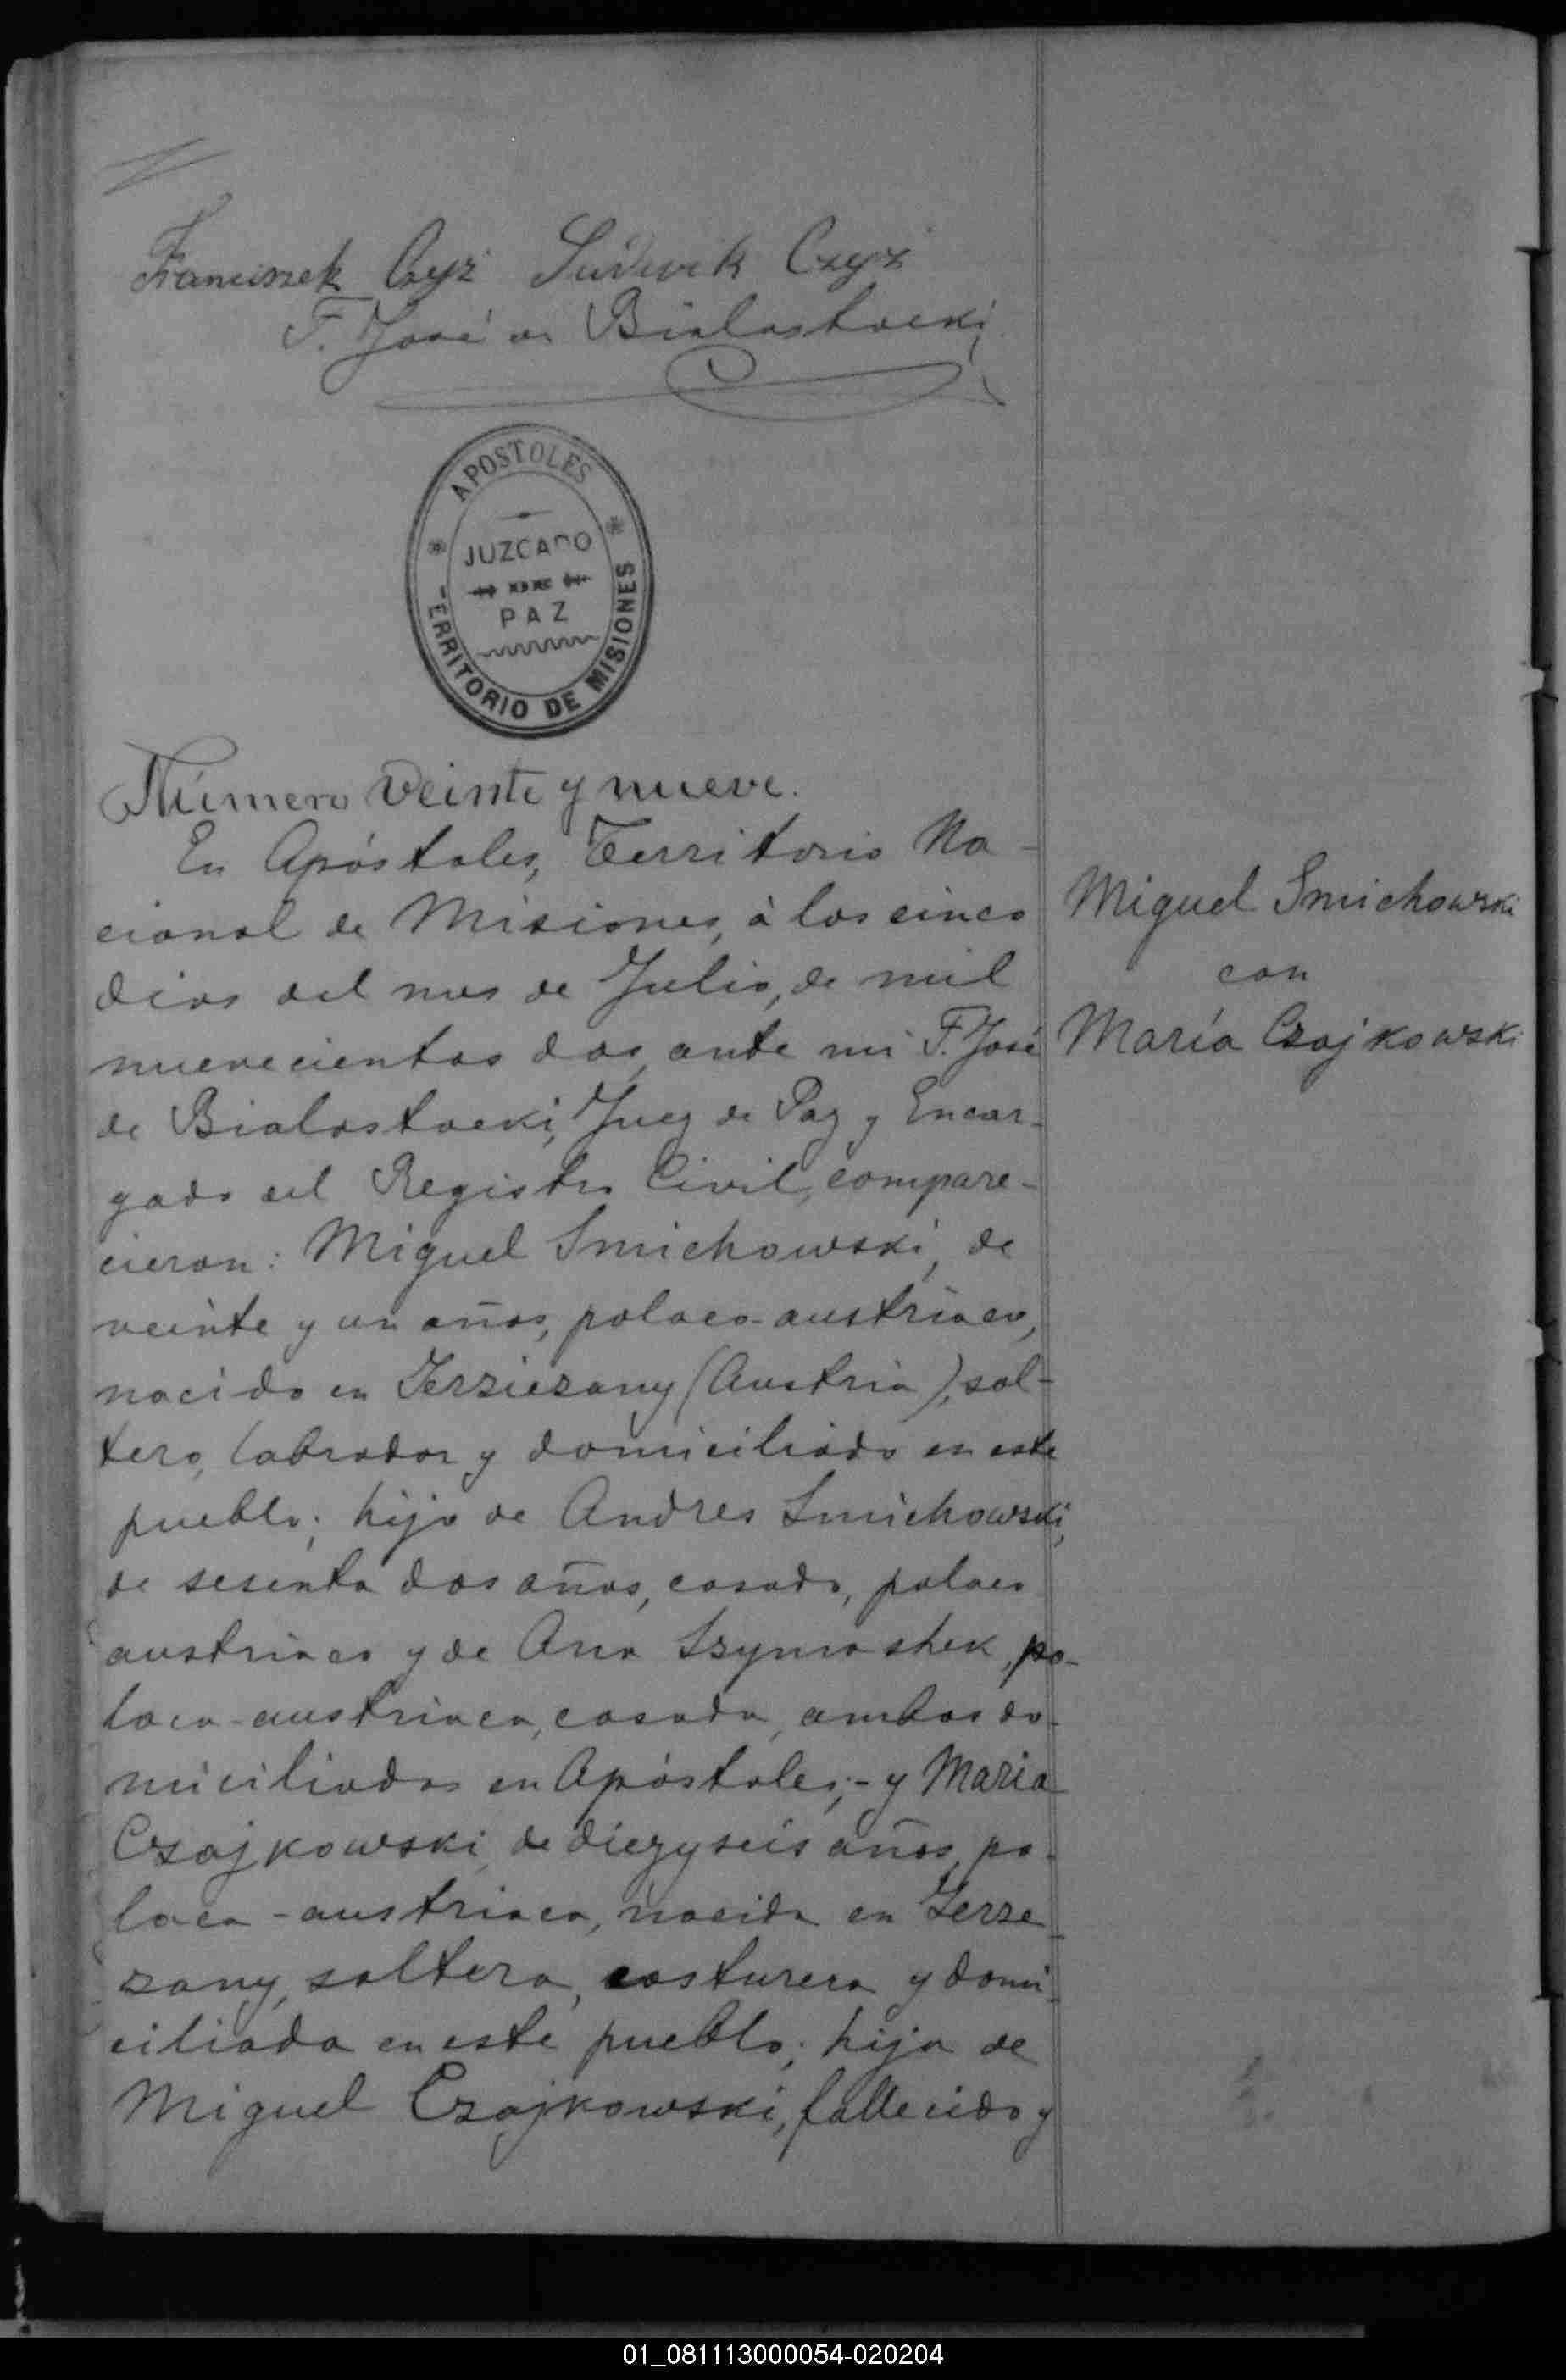 Franciszek Czyż Ludwik Czyż
F. José de Bialostocki
APOSTOLES
JUZGADO
DE
PAZ
TERRITORIO DE MISIONES
Número veinte y nueve.
En Apóstoles, Territorio Na-
cional de Misiones, à los cinco
dias del mes de Julio, de mil
nuevecientos dos, ante mi F. José
de Bialostocki, Juez de Paz y Encar-
gado del Registro Civil, compare-
cieron: Miguel Smichowski, de
veinte y un años, polaco-austriaco,
nacido en Jerziezany (Austria), sol-
tero, labrador y domiciliado en este
pueblo; hijo de Andres Smichowski,
de sesenta dos años, casado, polaco
austriaco y de Ana Szymashek, po-
laca-austriaca, casada, ambos do-
miciliados en Apóstoles;- y Maria
Czajkowski, de diez y seis años, po-
laca-austriaca, nacida en Jerze
zany, soltera, costurera y domi-
ciliada en este pueblo; hija de
Miguel Czajkowski, fallecido y
Miguel Smichowski
con
María Czajkowski
01_081113000054-020204